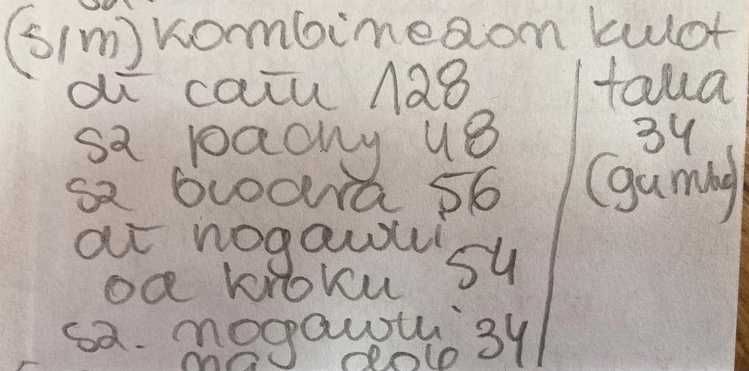 (S/m) kombinezon kulot
dł całk 128
sz pachy 48
sz biodra 56
dł nogawki
od kroku 54
sz. nogawki 34
na dole
talia
34
(guma)